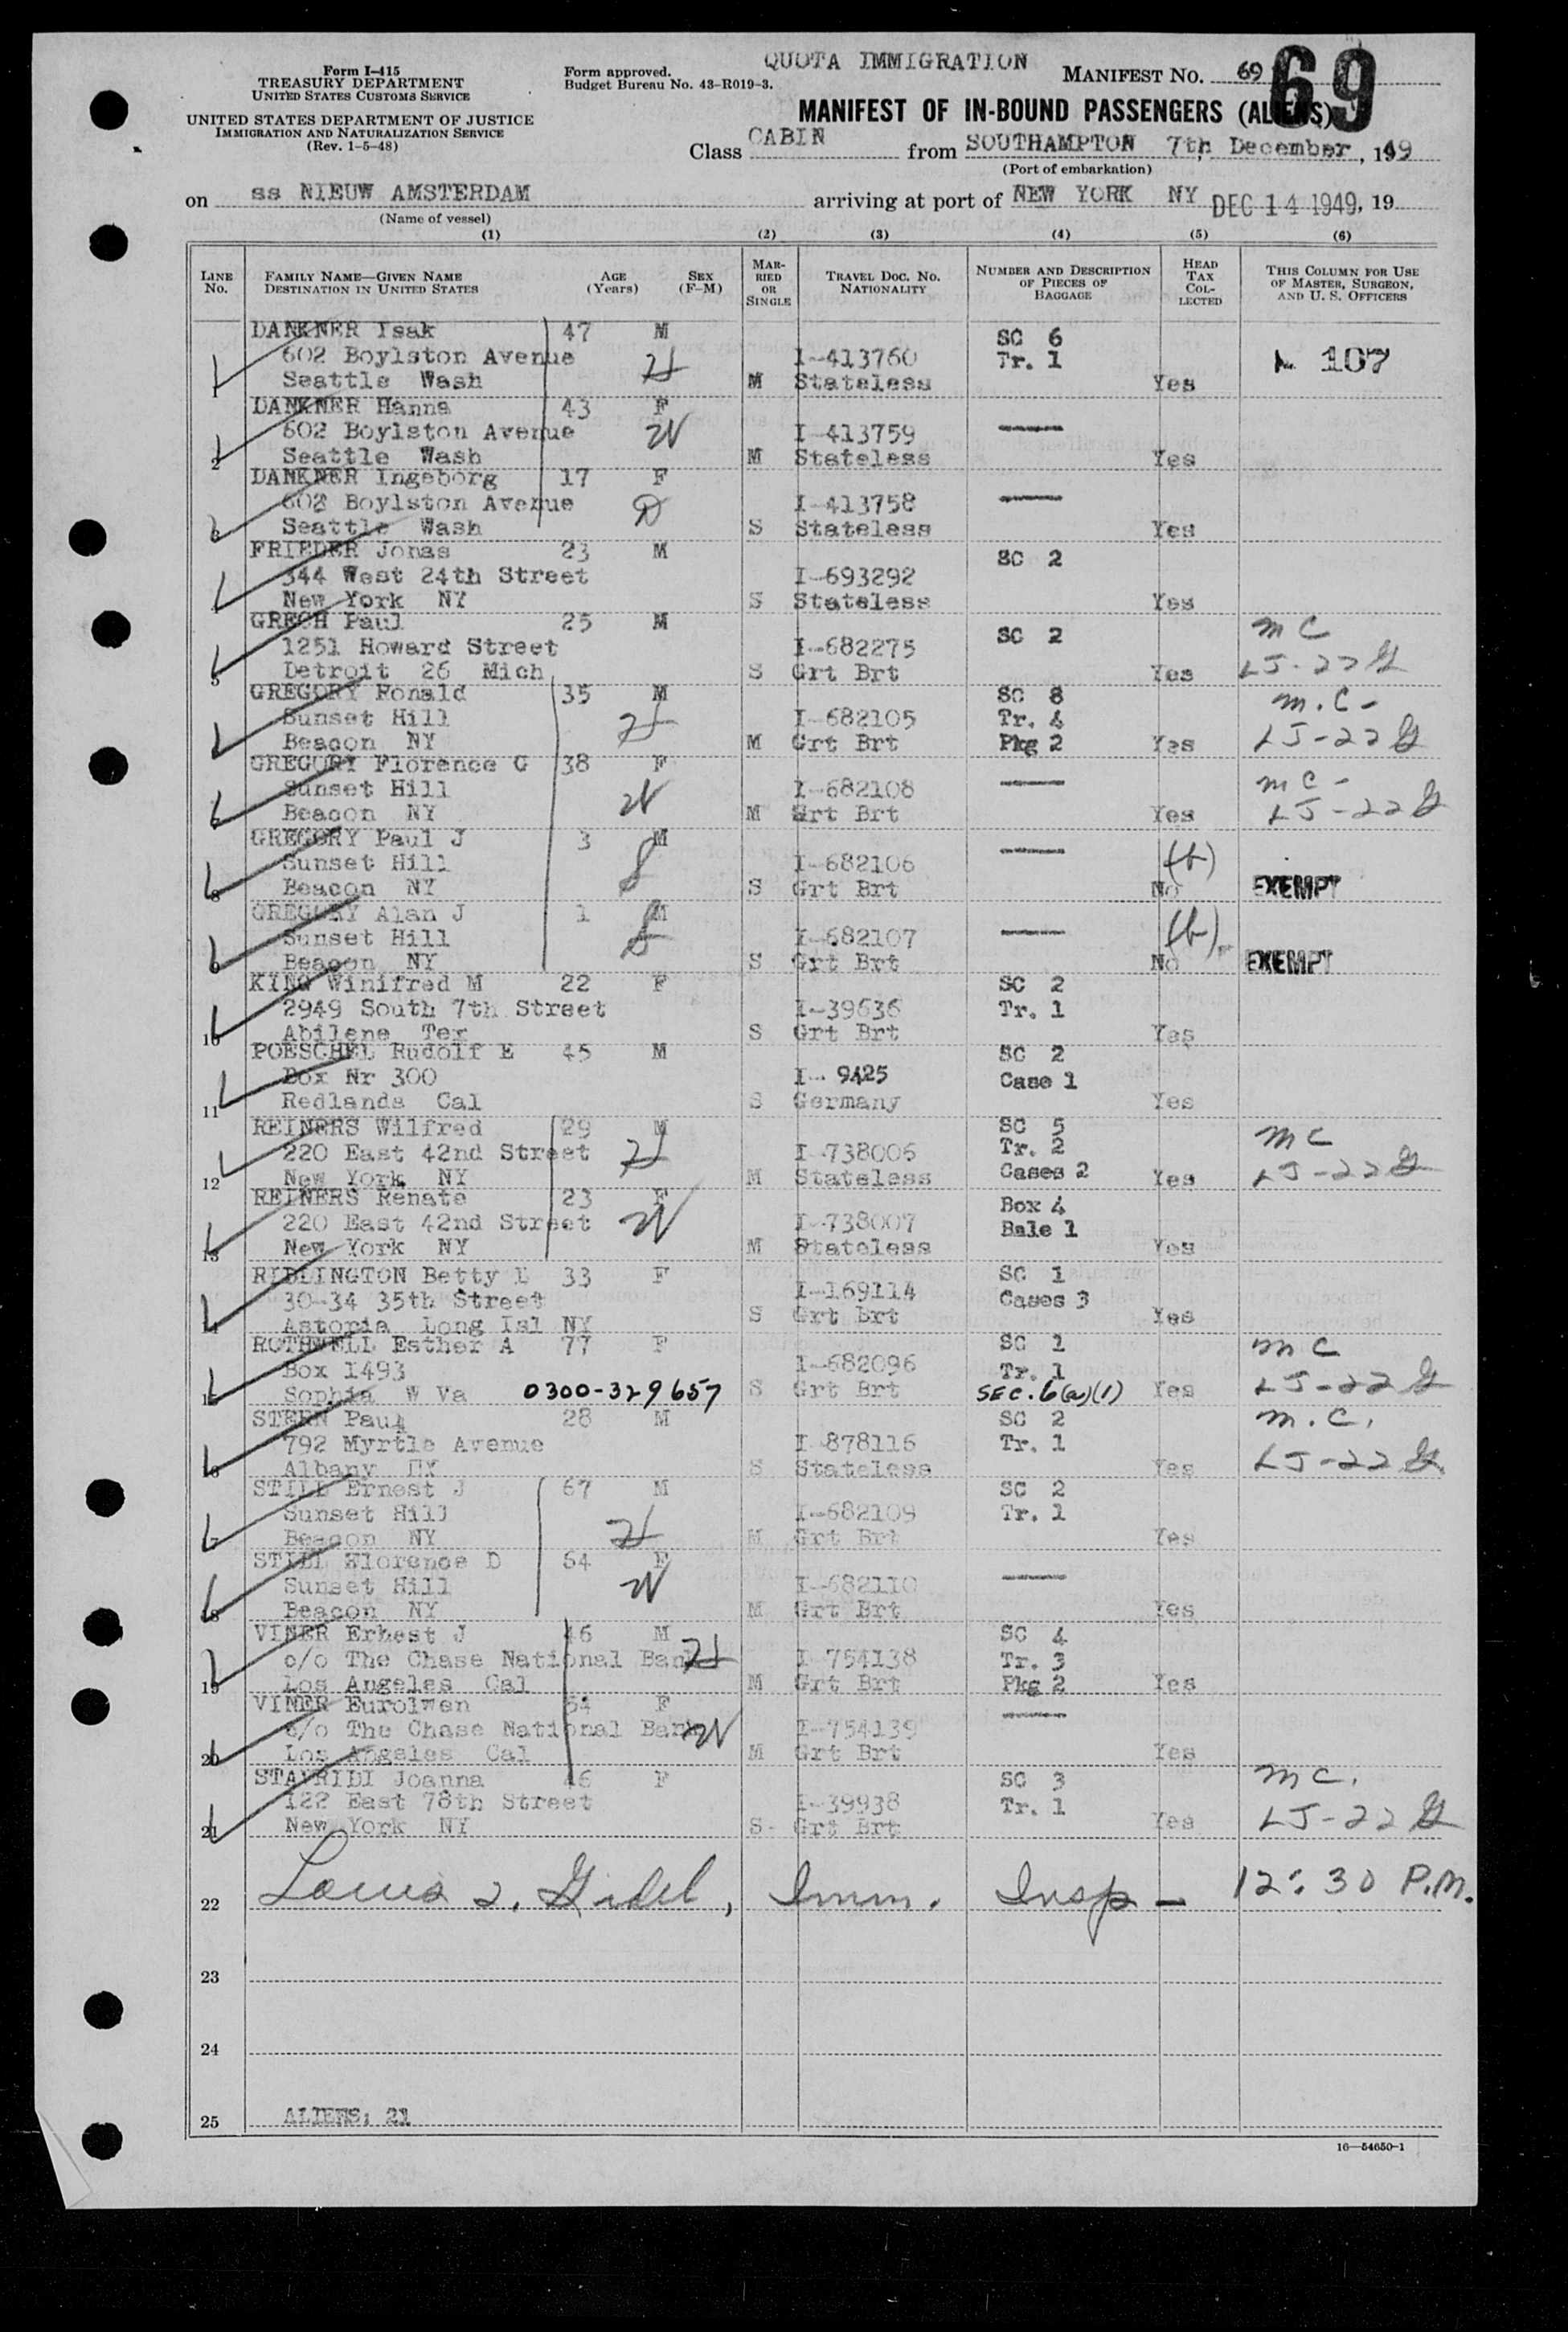 Form I-415
TREASURY DEPARTMENT
UNITED STATES CUSTOMS SERVICE
UNITED STATES DEPARTMENT OF JUSTICE
IMMIGRATION AND NATURALIZATION SERVICE
(Rev. 1-5-48)
Form approved.
Budget Bureau No. 43-R019-3.
QUOTA IMMIGRATION
MANIFEST No. 69
69
MANIFEST OF IN-BOUND PASSENGERS (ALIENS)
Class CABIN from SOUTHAMPTON 7th December, 1949
(Port of embarkation)
on ss NIEUW AMSTERDAM arriving at port of NEW YORK NY DEC 14 1949, 19
(Name of vessel)
(1) (2) (3) (4) (5) (6)
LINE No. FAMILY NAME—GIVEN NAME DESTINATION IN UNITED STATES AGE (Years) SEX (F-M) MARRIED OR SINGLE TRAVEL DOC. No. NATIONALITY NUMBER AND DESCRIPTION OF PIECES OF BAGGAGE HEAD TAX COLLECTED THIS COLUMN FOR USE OF MASTER, SURGEON, AND U. S. OFFICERS
DANKNER Isak 47 M SC 6
602 Boylston Avenue H I-413760 Tr. 1 107
1 Seattle Wash M Stateless Yes
DANKNER Hanna 43 F
602 Boylston Avenue W I-413759
2 Seattle Wash M Stateless Yes
DANKNER Ingeborg 17 F
602 Boylston Avenue D I-413758
3 Seattle Wash S Stateless Yes
FRIEDER Jonas 23 M SC 2
344 West 24th Street I-693292
New York NY S Stateless Yes
GRECH Paul 25 M SC 2 MC
1251 Howard Street I-682275
5 Detroit 26 Mich S Grt Brt Yes LJ-22 G
GREGORY Ronald 35 M SC 8 M.C-
Sunset Hill H I-682105 Tr. 4
Beacon NY M Grt Brt Pkg 2 Yes LJ-22 G
GREGORY Florence G 38 F MC-
Sunset Hill W I-682108
Beacon NY M Grt Brt Yes LJ-22 G
GREGORY Paul J 3 M
Sunset Hill S I-682106 (b)
8 Beacon NY S Grt Brt No EXEMPT
GREGORY Alan J 1 M
Sunset Hill S I-682107 (b)
9 Beacon NY S Grt Brt No EXEMPT
KING Winifred M 22 F SC 2
2949 South 7th Street I-39636 Tr. 1
10 Abilene Tex S Grt Brt Yes
POESCHEL Rudolf E 45 M SC 2
Box Nr 300 I- 9425 Case 1
11 Redlands Cal S Germany Yes
REINERS Wilfred 29 M SC 5 MC
220 East 42nd Street H I-738006 Tr. 2
12 New York NY M Stateless Cases 2 Yes LJ-22 G
REINERS Renate 23 F Box 4
220 East 42nd Street W I-738007 Bale 1
13 New York NY M Stateless Yes
RIDLINGTON Betty L 33 F SC 1
30-34 35th Street I-169114 Cases 3
Astoria Long Isl NY S Grt Brt Yes
ROTHWELL Esther A 77 F SC 1 MC
Box 1493 I-682096 Tr. 1
15 Sophia W Va 0300-329657 S Grt Brt SEC. 6(a)(1) Yes LJ-22 G
STERN Paul 28 M SC 2 M.C.
792 Myrtle Avenue I-878116 Tr. 1
Albany NY S Stateless Yes LJ-22 G
STILL Ernest J 67 M SC 2
Sunset Hill H I-682109 Tr. 1
Beacon NY M Grt Brt Yes
STILL Florence D 64 F
Sunset Hill W I-682110
Beacon NY M Grt Brt Yes
VINER Ernest J 46 M SC 4
c/o The Chase National Bank H I-754138 Tr. 3
19 Los Angeles Cal M Grt Brt Pkg 2 Yes
VINER Eurolwen F
c/o The Chase National Bank W I-754139
20 Los Angeles Cal M Grt Brt Yes
STAVRIDI Joanna 46 F SC 3 MC.
122 East 78th Street I-39938 Tr. 1
21 New York NY S- Grt Brt Yes LJ-22 G
22 Louis Imm. Insp — 12:30 P.M.
23
24
25 ALIENS: 21
16—54650-1